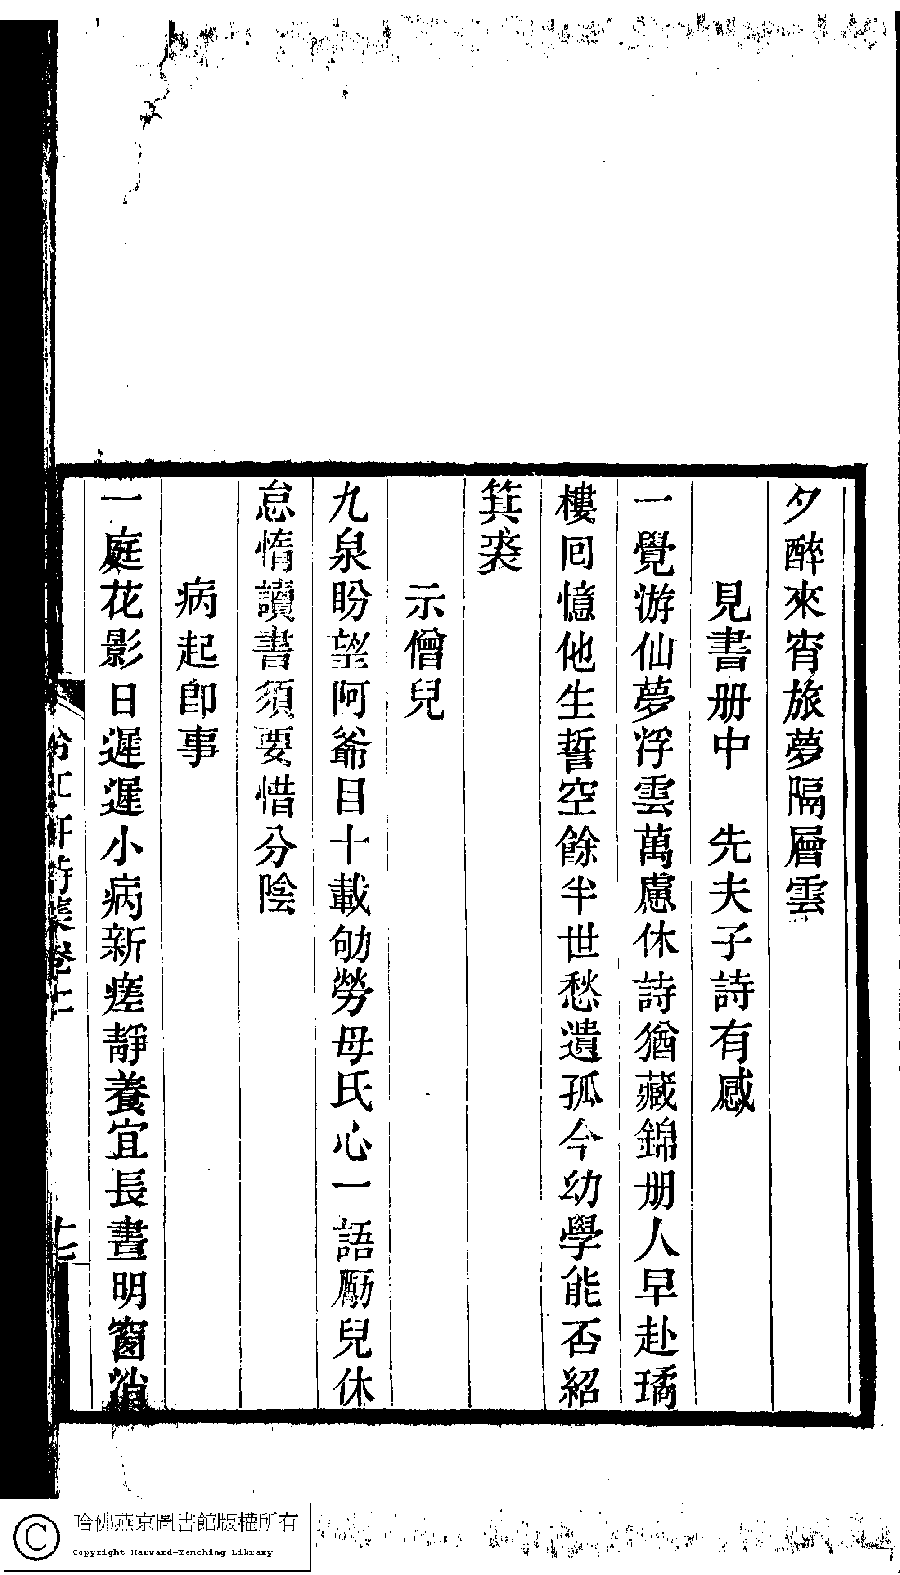 夕醉來宵旅夢隔層雲
見書册中　先夫子詩有感
一覺游仙夢浮雲萬慮休詩猶藏錦册人早赴璚
樓囘憶他生誓空餘半世愁遺孤今幼學能否紹
箕裘
示僧兒
九泉盼望阿爺目十載劬勞母氏心一語勵兒休
怠惰讀書須要惜分陰
病起卽事
一庭花影日遲遲小病新瘥靜養宜長晝明窗消
軒詩集卷七
十七
哈佛燕京圖書館版權所有
Copyright Harvard-Yenching Library